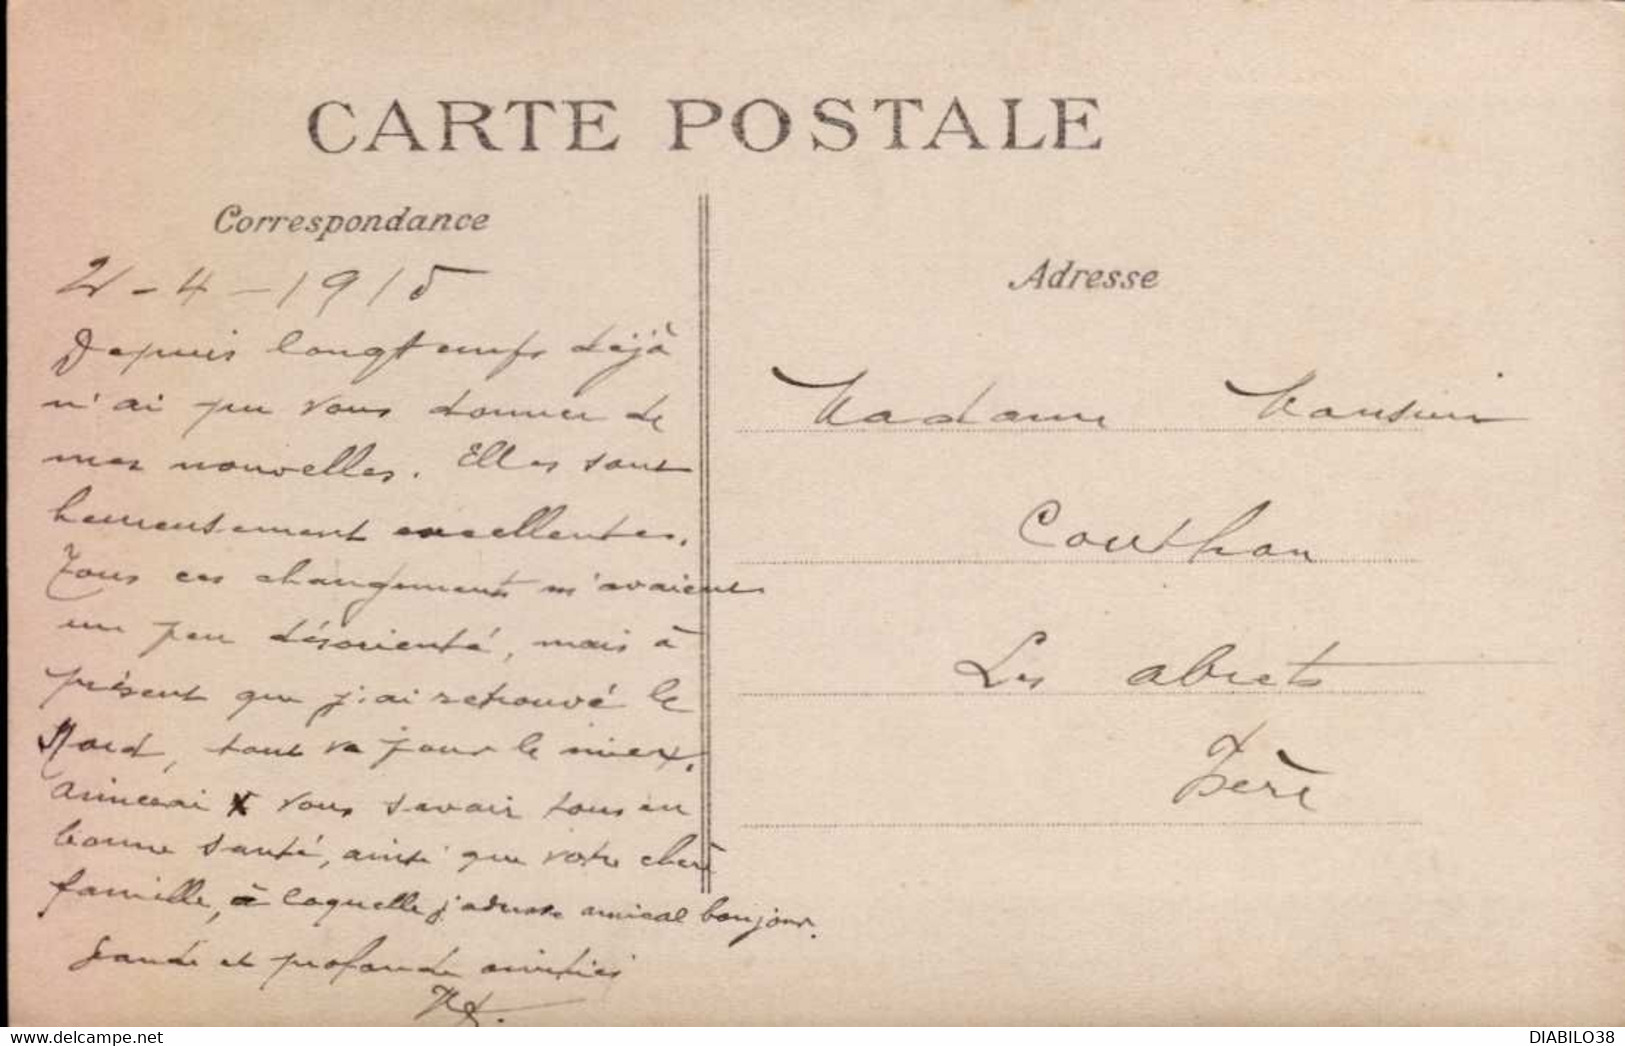 CARTE POSTALE
Correspondance
2-4-1915
Depuis longtemps déjà
n'ai pu vous donner de
mes nouvelles. Elles sont
heureusement excellentes.
Tous ces changements m'avaient
un peu désorienté, mais à
présent que j'ai retrouvé le
Nord, tout va pour le mieux.
Aimerai vous savoir tous en
bonne santé, ainsi que votre chère
famille, à laquelle j'adresse amical bonjour.
Grande et profonde amitiés
Adresse
Madame
Couthon
Les Abrets
Isère
DIABILO38